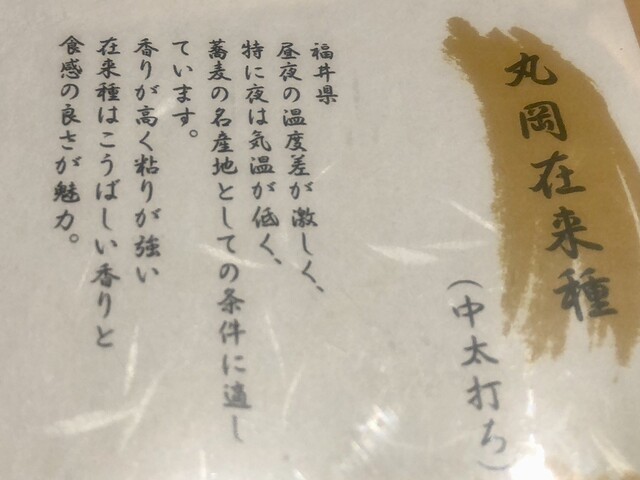 丸岡在来種
（中太打ち）
福井県
昼夜の温度差が激しく、
特に夜は気温が低く、
蕎麦の名産地としての条件に適し
ています。
香りが高く粘りが強い
在来種はこうばしい香りと
食感の良さが魅力。